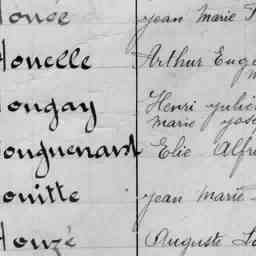 Houée Jean Marie
Houelle Arthur Eug
Hougay Henri Julie
Marie Jose
Houguenard Elie Alfre
Houitte Jean Marie
Houzé Auguste